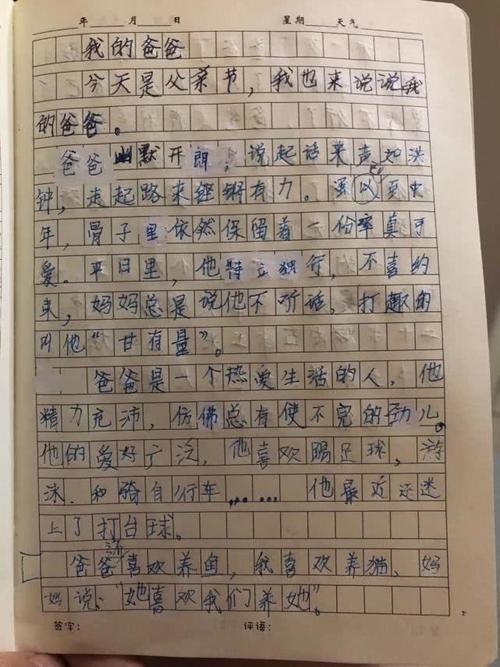 年 月 日 星期 天气
我的爸爸
今天是父亲节，我也来说说我
的爸爸。
爸爸幽默开朗，说起话来声如洪
钟，走起路来铿锵有力。虽已至中
年，骨子里依然保留着一份率真可
爱。平日里，他特立独行，不喜约
束，妈妈总是说他不听话，打趣的
叫他“甘有量”。
爸爸是一个热爱生活的人，他
精力充沛，仿佛总有使不完的劲儿。
他的爱好广泛，他喜欢踢足球，游
泳，和骑自行车……他最近还迷
上了打台球。
爸爸喜欢养鱼，我喜欢养猫，妈
妈说：“她喜欢我们养她”。
签字： 评语：